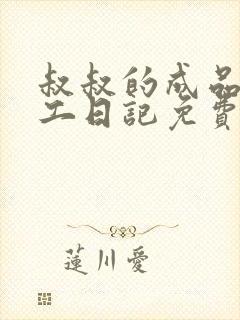 叔叔的成品
工日記免費
蓮川愛